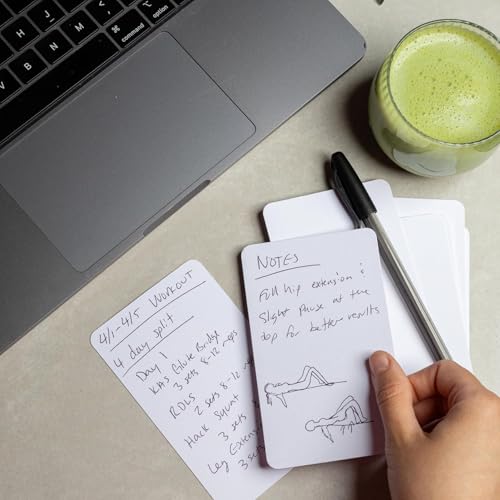 H
J
K
L
V
B
N
M
<
>
?
⌘
command
⌥
option
4/1-4/5 WORKOUT
4 day split
Day 1
KAS Glute Bridge
3 sets 8-12 reps
RDLS
2 sets 8-12
Hack Squat
3 sets
Leg Extension
3 sets
NOTES
Full hip extension &
Slight Pause at the
top for better results